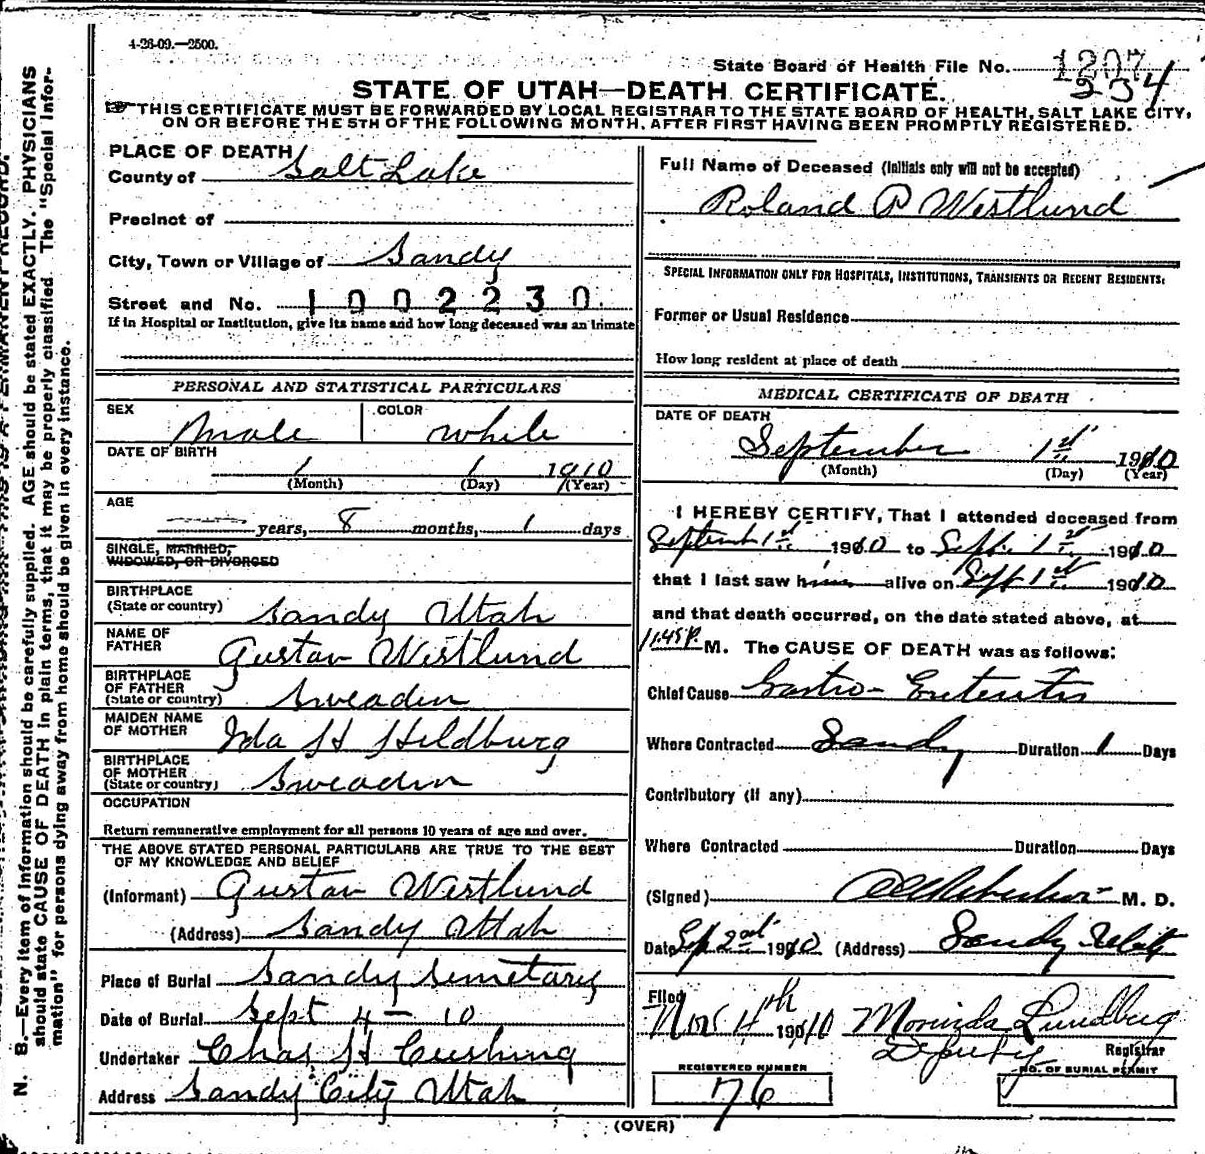 4-26-09.—2500.
State Board of Health File No. 1207
234
STATE OF UTAH—DEATH CERTIFICATE.
THIS CERTIFICATE MUST BE FORWARDED BY LOCAL REGISTRAR TO THE STATE BOARD OF HEALTH, SALT LAKE CITY,
ON OR BEFORE THE 5TH OF THE FOLLOWING MONTH, AFTER FIRST HAVING BEEN PROMPTLY REGISTERED.
PLACE OF DEATH
County of Salt Lake
Precinct of
City, Town or Village of Sandy
Street and No. 1002230
If in Hospital or Institution, give its name and how long deceased was an inmate
PERSONAL AND STATISTICAL PARTICULARS
SEX Male COLOR White
DATE OF BIRTH 1 1 1910
(Month) (Day) (Year)
AGE
— years, 8 months, 1 days
SINGLE, MARRIED,
WIDOWED, OR DIVORCED
BIRTHPLACE
(State or country) Sandy Utah
NAME OF
FATHER Gustav Westlund
BIRTHPLACE
OF FATHER
(State or country) Sweadin
MAIDEN NAME
OF MOTHER Ida H Heldburg
BIRTHPLACE
OF MOTHER
(State or country) Sweadin
OCCUPATION
Return remunerative employment for all persons 10 years of age and over.
THE ABOVE STATED PERSONAL PARTICULARS ARE TRUE TO THE BEST
OF MY KNOWLEDGE AND BELIEF
(Informant) Gustav Westlund
(Address) Sandy Utah
Place of Burial Sandy Semetary
Date of Burial Sept 4 - 10
Undertaker Chas H Cushing
Address Sandy City Utah
Full Name of Deceased (Initials only will not be accepted)
Roland P Westlund
SPECIAL INFORMATION ONLY FOR HOSPITALS, INSTITUTIONS, TRANSIENTS OR RECENT RESIDENTS:
Former or Usual Residence
How long resident at place of death
MEDICAL CERTIFICATE OF DEATH
DATE OF DEATH
September 1st 1910
(Month) (Day) (Year)
I HEREBY CERTIFY, That I attended deceased from
September 1st 1910 to Sept. 1st 1910
that I last saw him alive on Sept 1st 1910
and that death occurred, on the date stated above, at
11.45 P. M. The CAUSE OF DEATH was as follows:
Chief Cause Gastro-Enteritis
Where Contracted Sandy Duration 1 Days
Contributory (if any)
Where Contracted Duration Days
(Signed) M. D.
Date Sep 2nd 1910 (Address) Sandy Utah
Filed Nov 4th 1910 Morinda Lundberg
Deputy Registrar
REGISTERED NUMBER
76
NO. OF BURIAL PERMIT
(OVER)
N. B.—Every item of information should be carefully supplied. AGE should be stated EXACTLY. PHYSICIANS
should state CAUSE OF DEATH in plain terms, that it may be properly classified. The "Special Infor-
mation" for persons dying away from home should be given in every instance.